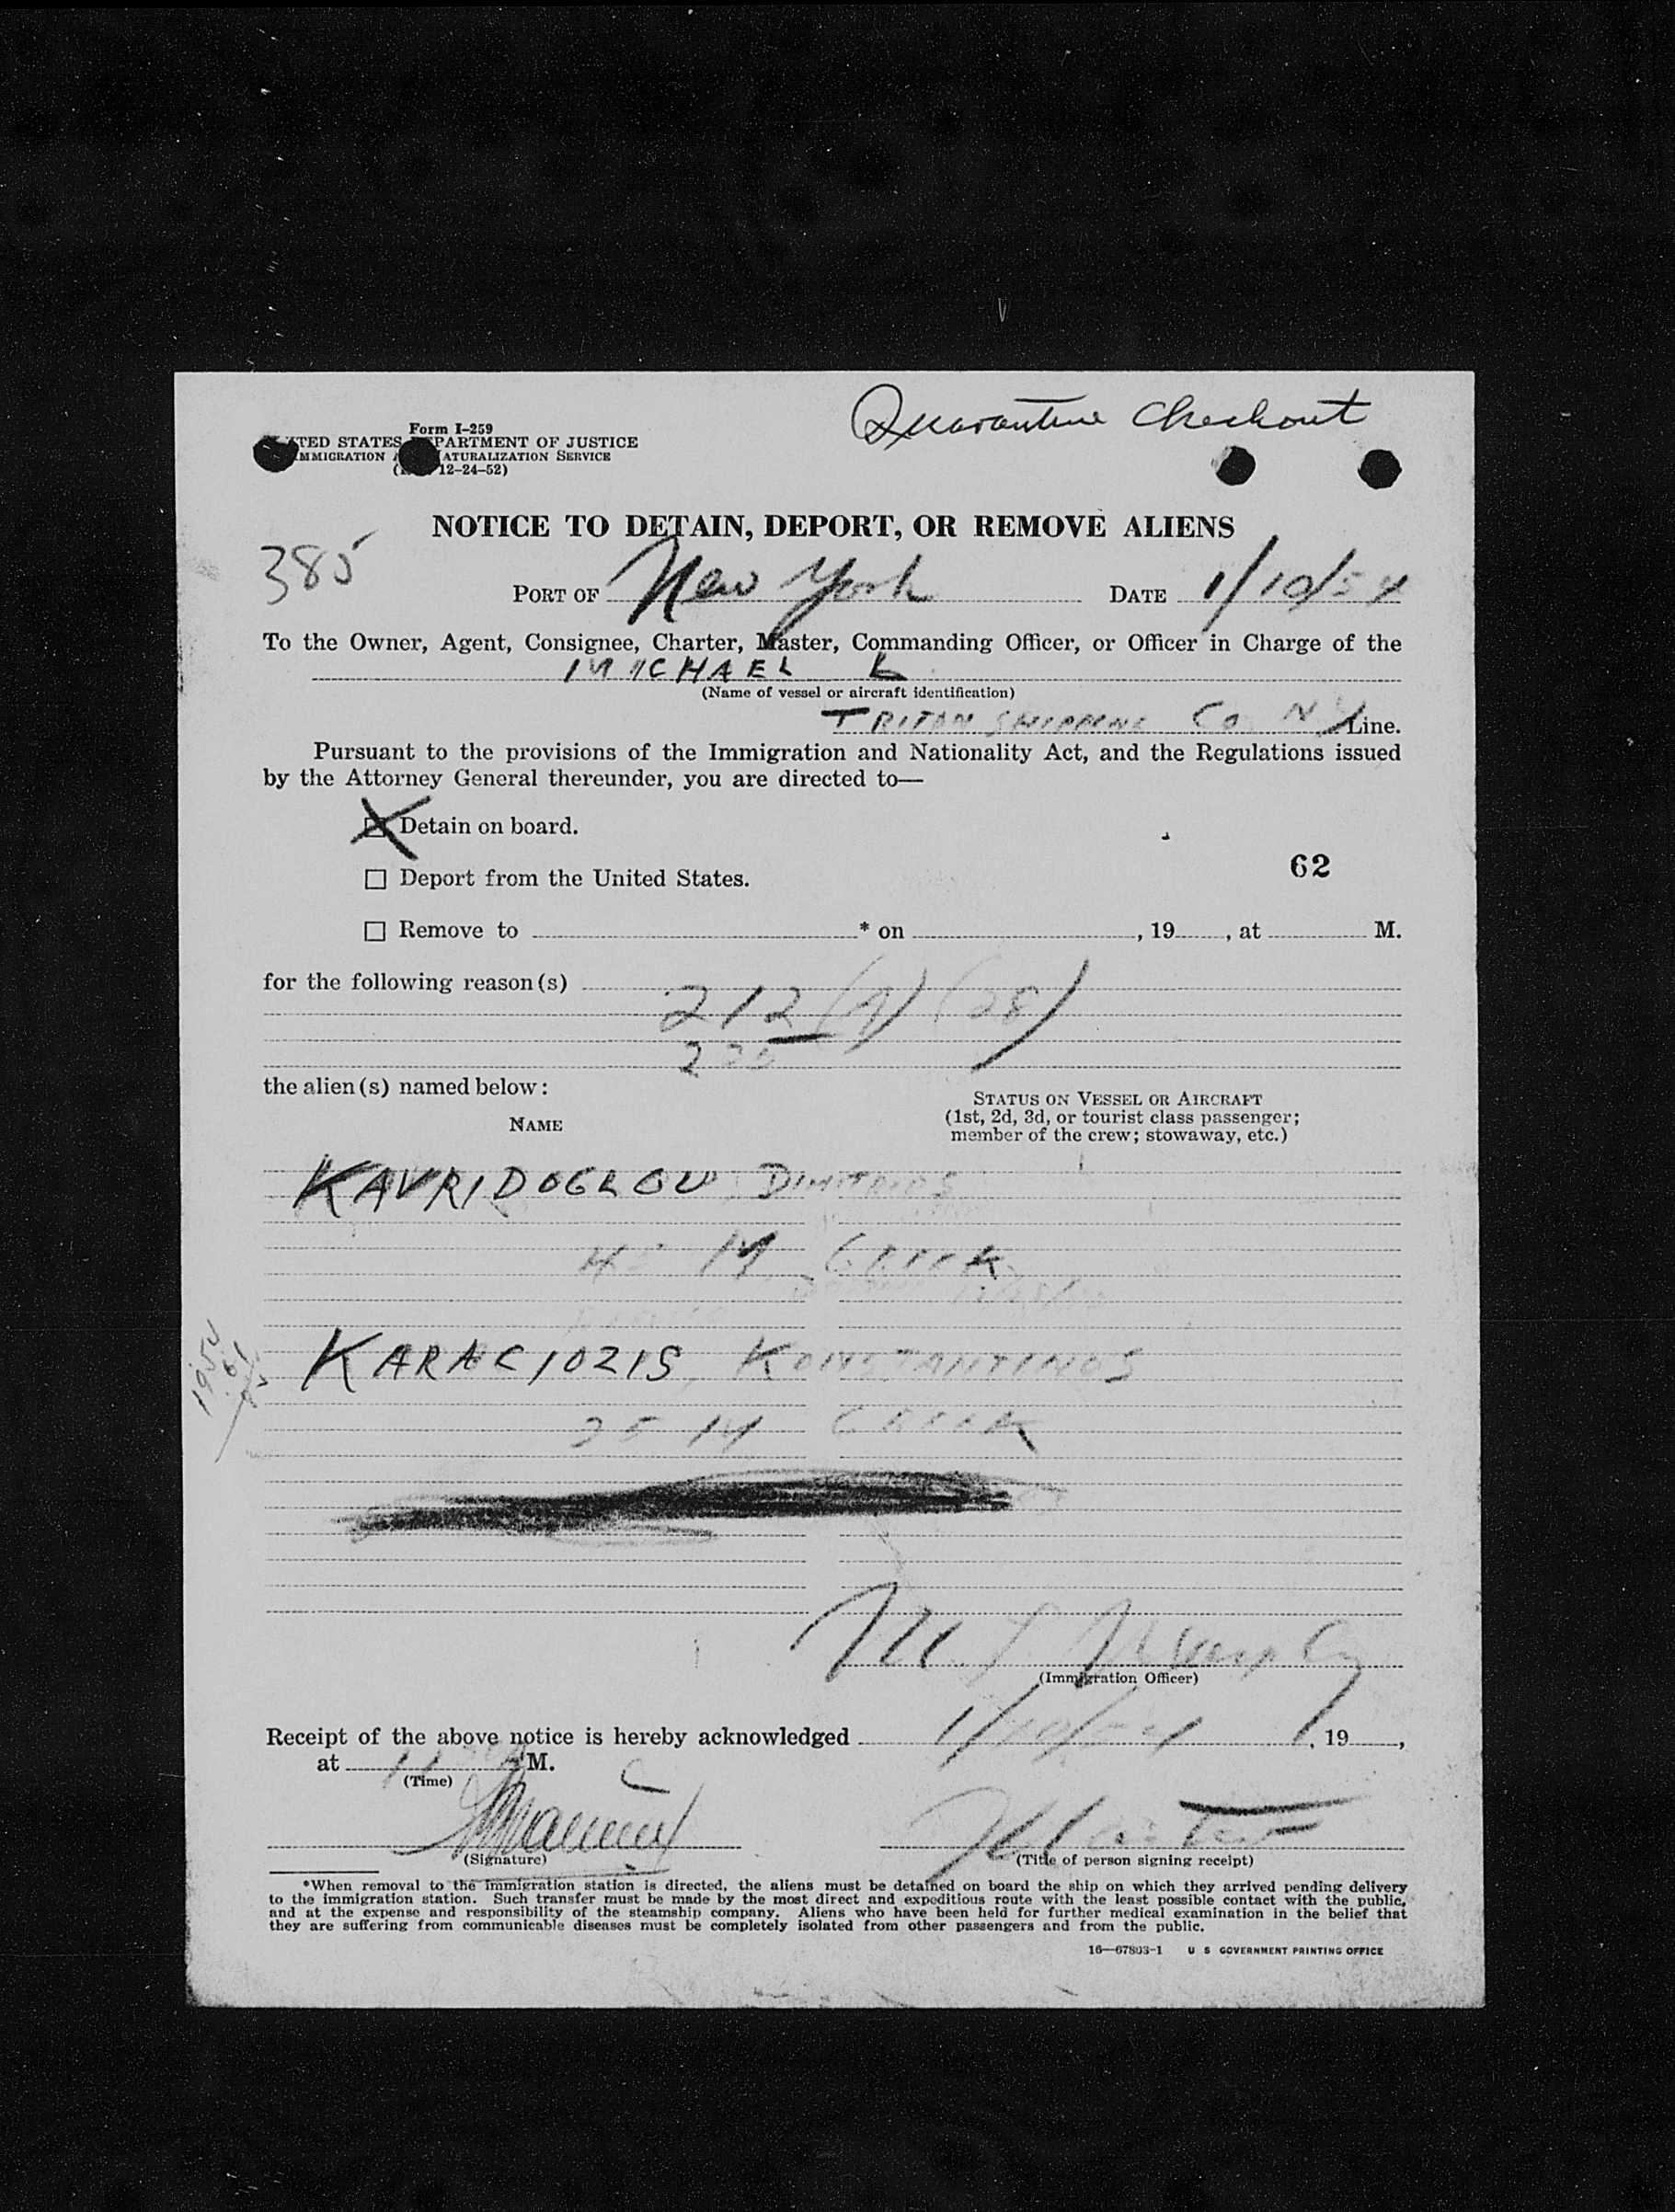 Quarantine Checkout
Form I-259
UNITED STATES DEPARTMENT OF JUSTICE
IMMIGRATION AND NATURALIZATION SERVICE
12-24-52)
NOTICE TO DETAIN, DEPORT, OR REMOVE ALIENS
385
PORT OF New York DATE 1/10/54
To the Owner, Agent, Consignee, Charter, Master, Commanding Officer, or Officer in Charge of the
MICHAEL L
(Name of vessel or aircraft identification)
TRITON SHIPPING Co NY Line.
Pursuant to the provisions of the Immigration and Nationality Act, and the Regulations issued
by the Attorney General thereunder, you are directed to—
Detain on board.
62
Deport from the United States.
Remove to * on , 19 , at M.
for the following reason(s)
212 (A) (28)
235
the alien(s) named below:
STATUS ON VESSEL OR AIRCRAFT
NAME
(1st, 2d, 3d, or tourist class passenger;
member of the crew; stowaway, etc.)
KAVRIDOGLOU DIMITRIOS
M GREEK
KARACIOZIS, KONSTANTINOS
25 M GREEK
M. J. Murphy
(Immigration Officer)
Receipt of the above notice is hereby acknowledged 1/10/54 , 19 ,
at 11 M.
(Time)
(Signature)
(Title of person signing receipt)
*When removal to the immigration station is directed, the aliens must be detained on board the ship on which they arrived pending delivery
to the immigration station. Such transfer must be made by the most direct and expeditious route with the least possible contact with the public,
and at the expense and responsibility of the steamship company. Aliens who have been held for further medical examination in the belief that
they are suffering from communicable diseases must be completely isolated from other passengers and from the public.
16—67803-1 U S GOVERNMENT PRINTING OFFICE